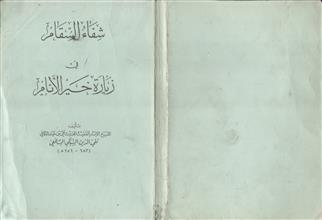 شفاء السقام
في
زيارة خير الأنام
تأليف
تقي الدين السبكي الشافعي
(٦٨٣ - ٧٥٦ هـ)